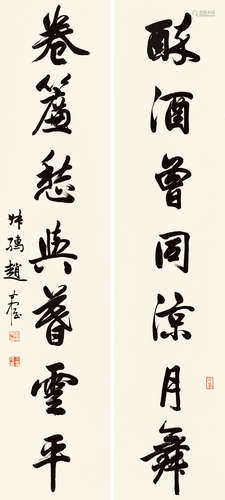 酥酒曾同凉月舞
卷簾愁與暮雲平
叔孺趙